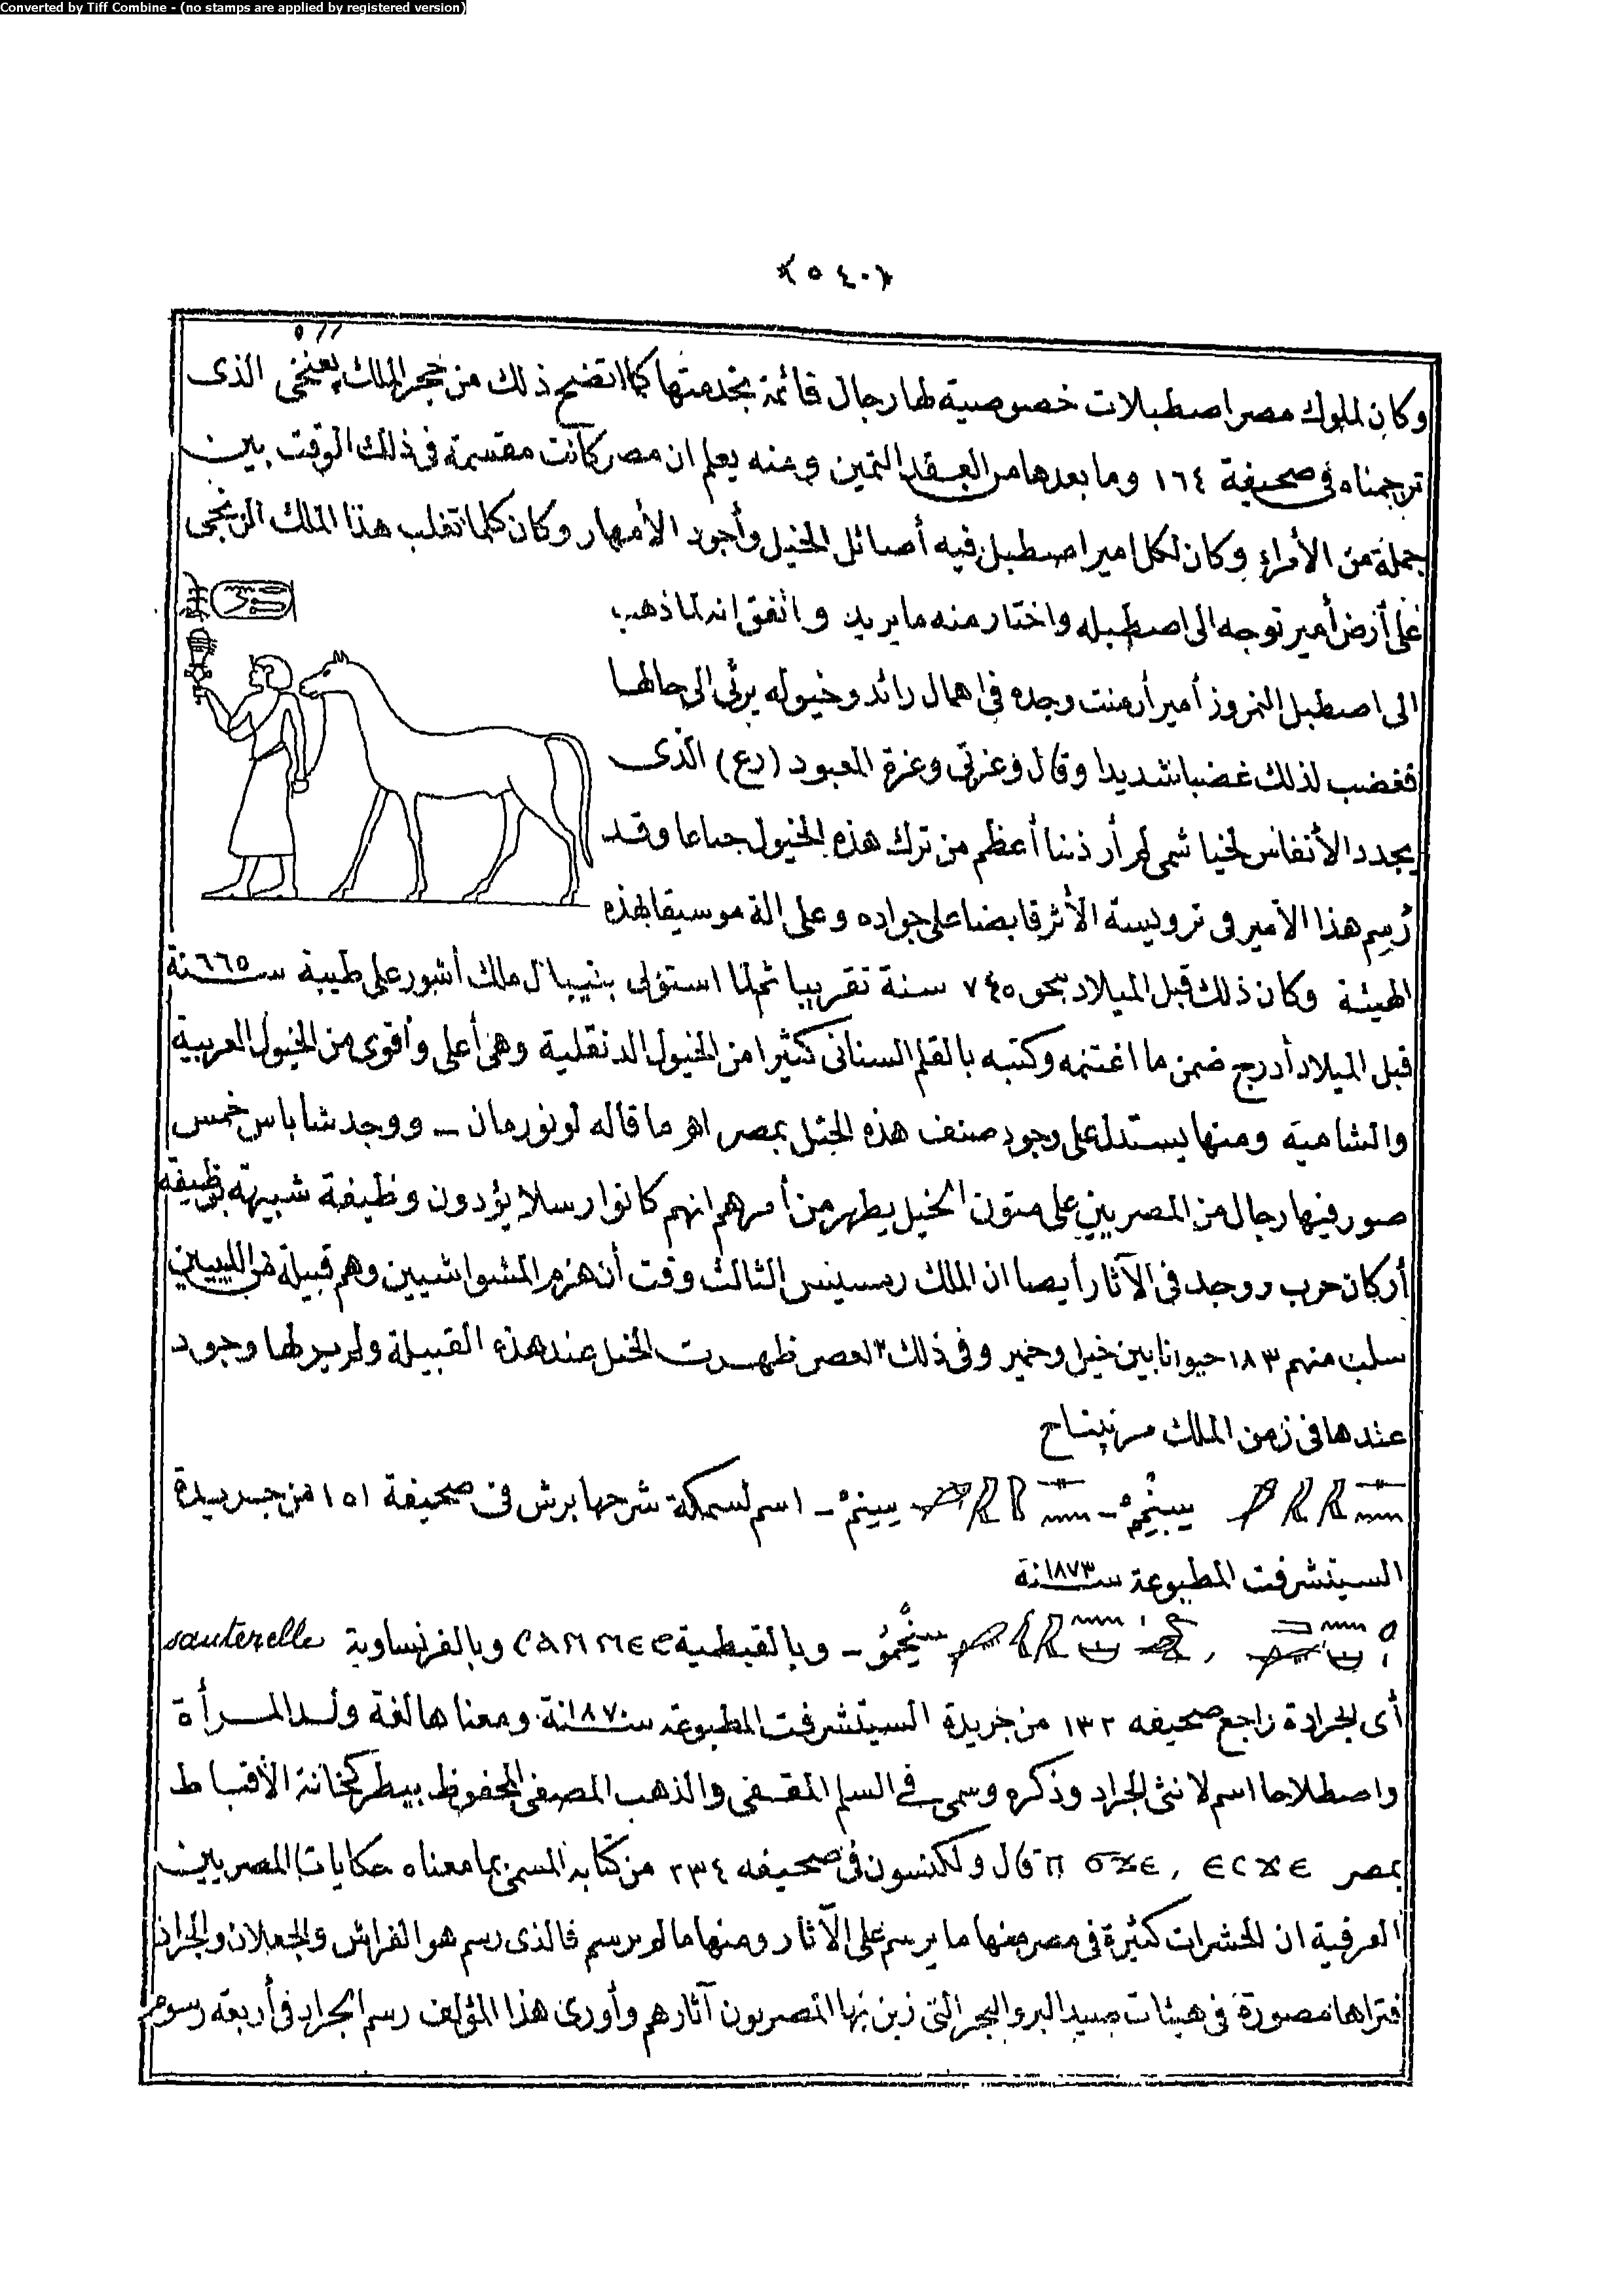 Converted by Tiff Combine - (no stamps are applied by registered version)
﴿٥٤٠﴾
وكان لملوك مصر اصطبلات خصوصية لها رجال قائمة بخدمتها كما اتضح ذلك من حجر الملك يعنخى الذى
ترجمناه فى صحيفة ١٦٤ وما بعدها من العقد الثمين ومنه يعلم ان مصر كانت مقسمة فى ذلك الوقت بين
جملة من الأمراء وكان لكل امير اصطبل فيه أصائل الخيل وأجود الأمهار وكان كلما تغلب هذا الملك الزنجى
على أرض أمير توجه الى اصطبله واختار منه ما يريد واتفق انه لما ذهب
الى اصطبل النمروز أمير أرمنت وجده فى اهمال زائد وخيوله يرثى الى حالها
فغضب لذلك غضبا شديدا وقال وعزتى وعزة المعبود (رع) الذى
يجدد الأنفاس لخياشمى لم أر ذنبا أعظم من ترك هذه الخيول جياعا وقد
رُسِم هذا الامير فى ترويسة الأثر قابضا على جواده وعلى الة موسيقا بهذه
الهيئة وكان ذلك قبل الميلاد بنحو ٧٤٥ سنة تقريبا ثم لما استولى بنيبال ملك أشور على طيبة سنة ٦٦٥
قبل الميلاد أدرج ضمن ما اغتنمه وكتبه بالقلم السنانى كثيرا من الخيول الدنقلية وهى أعلى وأقوى من الخيول العربية
والشامية ومنها يستدل على وجود صنف هذه الخيل بمصر اهـ ما قاله لونورمان ـ ووجد شاباس خمس
صور فيها رجال من المصريين على متون الخيل يظهر من أمرهم انهم كانوا رسلا يؤدون وظيفة شبيهة بوظيفة
أركان حرب ووجد فى الآثار أيضا ان الملك رمسيس الثالث وقت أن هزم المشواشيين وهم قبيلة من الليبيين
سلب منهم ١٨٣ حيوانا بين خيل وحمير وفى ذلك العصر ظهرت الخيل عند هذه القبيلة ولم ير لها وجود
عندها فى زمن الملك مرنپتاح
ـ اسم لسمكة شرحها برش فى صحيفة ١٥١ من جريدة
السيتشرفت المطبوعة سنة ١٨٧٣
ـ وبالقبطية ⲤⲀⲚⲚⲈϨ وبالفرنساوية sauterelle
أى الجرادة راجع صحيفه ١٣٢ من جريدة السيتشرفت المطبوعة سنة ١٨٧٠ ومعناها لغة ولد المرأة
واصطلاحا اسم لانثى الجراد وذكره وسمى فى السلم المقفى والذهب المصفى المحفوظ ببطركخانة الأقباط
بمصر قال ولكنسون فى صحيفه ٢٣٤ من كتابه المسمى بما معناه حكايات المصريين
العرفية ان الحشرات كثيرة فى مصر منها ما يرسم على الآثار ومنها ما لم يرسم فالذى رسم هو الفراش والجعلان والجراد
فتراها مصورة فى هيئات صيد البر والبحر التى زين بها المصريون آثارهم وأورى هذا المؤلف رسم الجراد فى أربعة رسوم